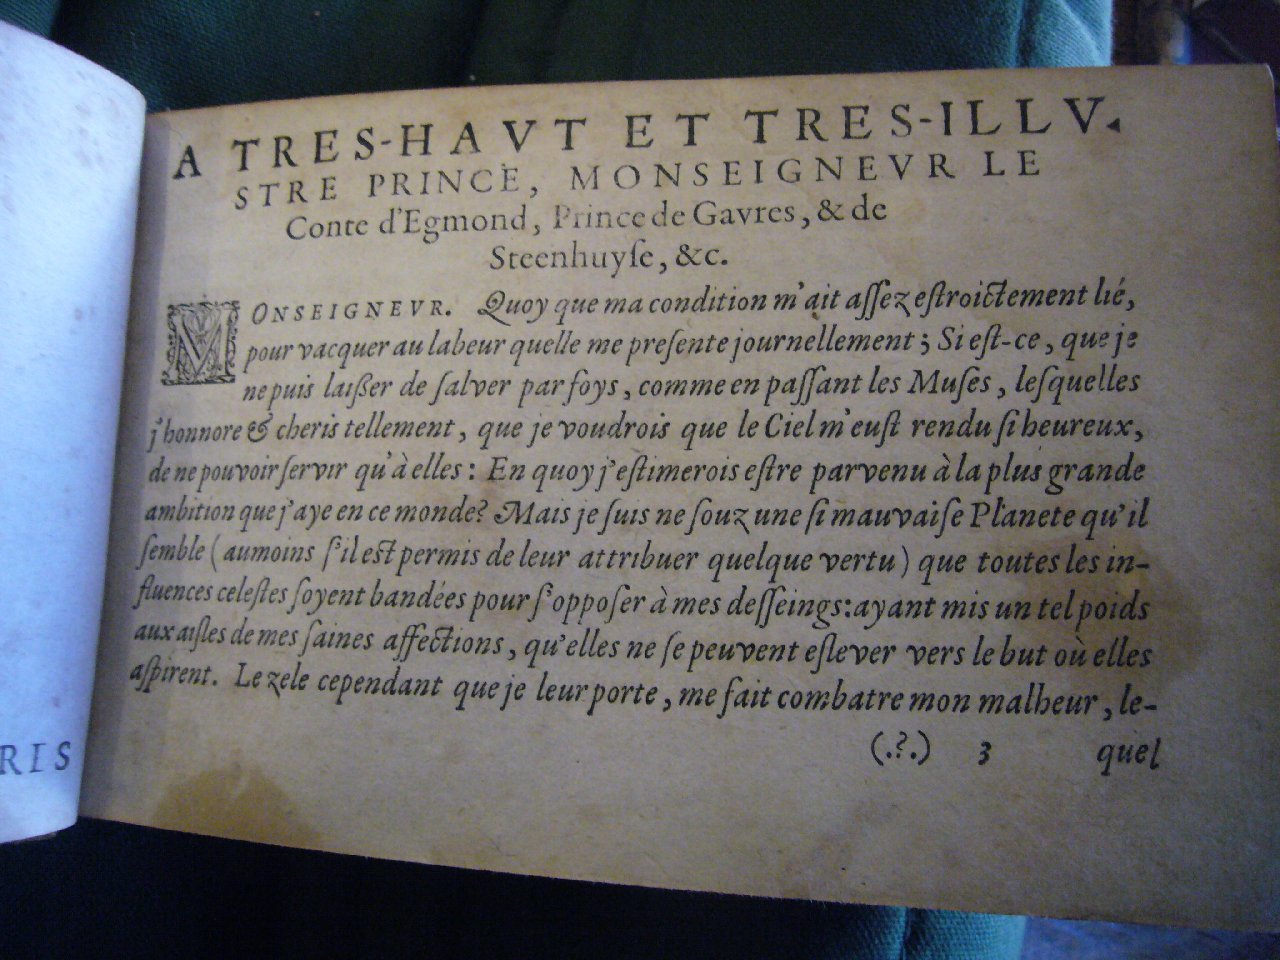 A TRES-HAVT ET TRES-ILLV-
STRE PRINCE, MONSEIGNEVR LE
Conte d'Egmond, Prince de Gavres, & de
Steenhuyſe, &c.
MONSEIGNEVR. Quoy que ma condition m'ait aſſez eſtroictement lié,
pour vacquer au labeur quelle me preſente journellement; Si eſt-ce, que je
ne puis laißer de ſalver par foys, comme en paſſant les Muſes, leſquelles
j'honnore & cheris tellement, que je voudrois que le Ciel m'euſt rendu ſi heureux,
de ne pouvoir ſervir qu'à elles: En quoy j'eſtimerois eſtre parvenu à la plus grande
ambition que j'aye en ce monde? Mais je ſuis ne ſouz une ſi mauvaiſe Planete qu'il
ſemble (aumoins ſ'il eſt permis de leur attribuer quelque vertu) que toutes les in-
fluences celeſtes ſoyent bandées pour ſ'oppoſer à mes deſſeings: ayant mis un tel poids
aux aiſles de mes ſaines affections, qu'elles ne ſe peuvent eſlever vers le but où elles
aſpirent. Le zele cependant que je leur porte, me fait combatre mon malheur, le-
(.?.) 3 quel
RIS